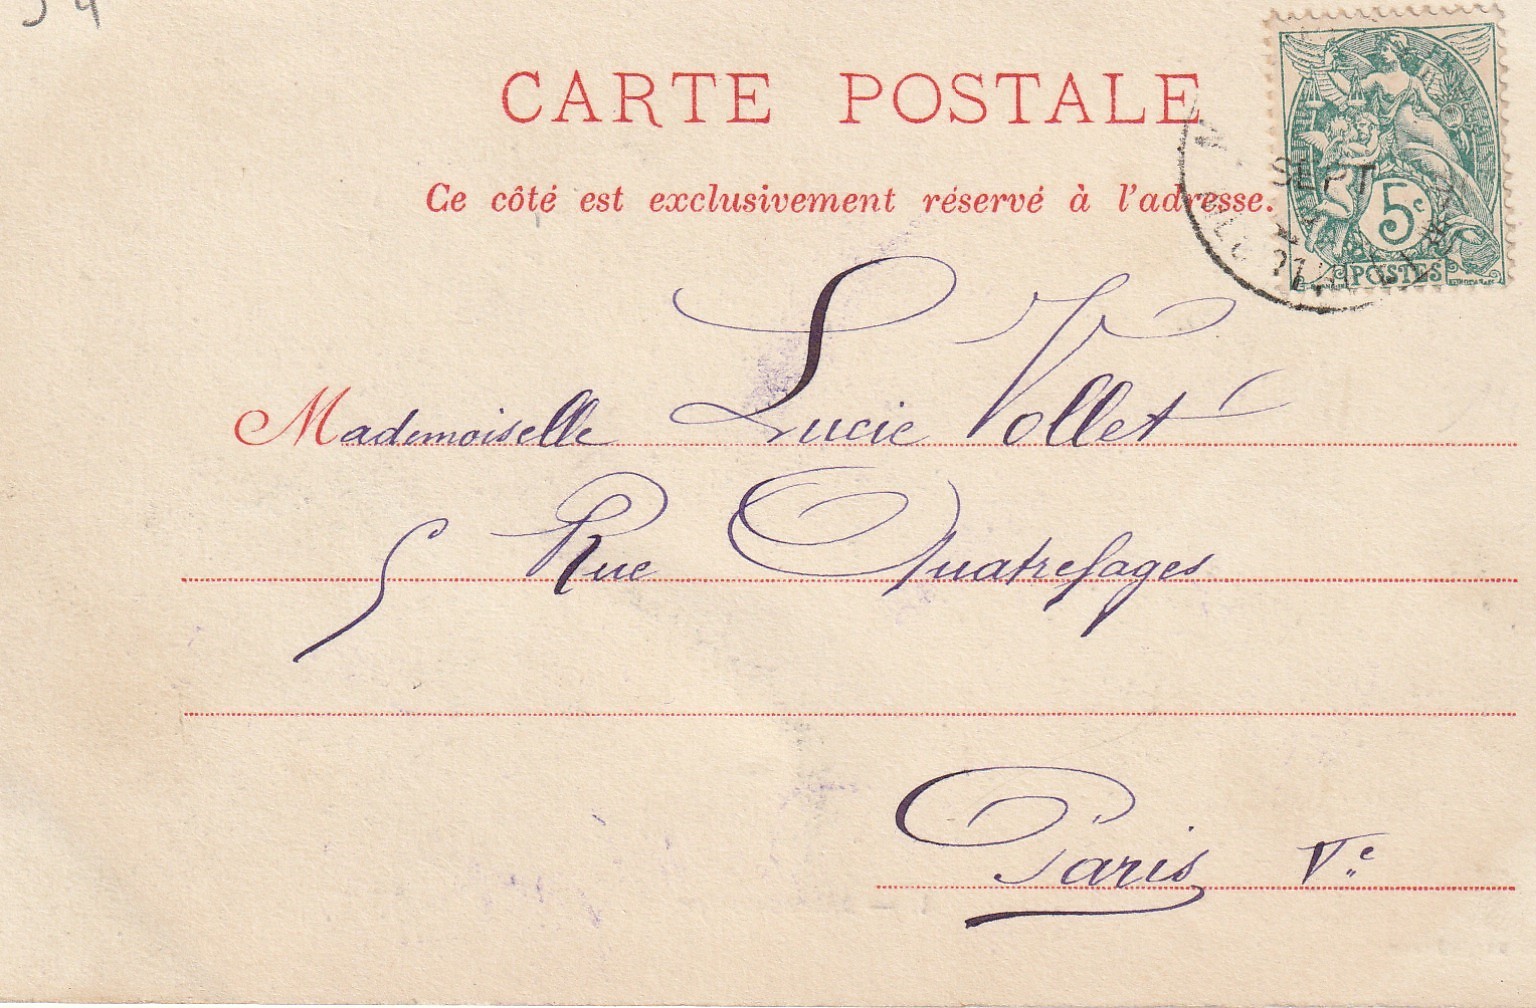 CARTE POSTALE
Ce côté est exclusivement réservé à l'adresse.
SEPT
5c
POSTES
Mademoiselle Lucie Vollet
5 Rue Quatrefages
Paris Ve